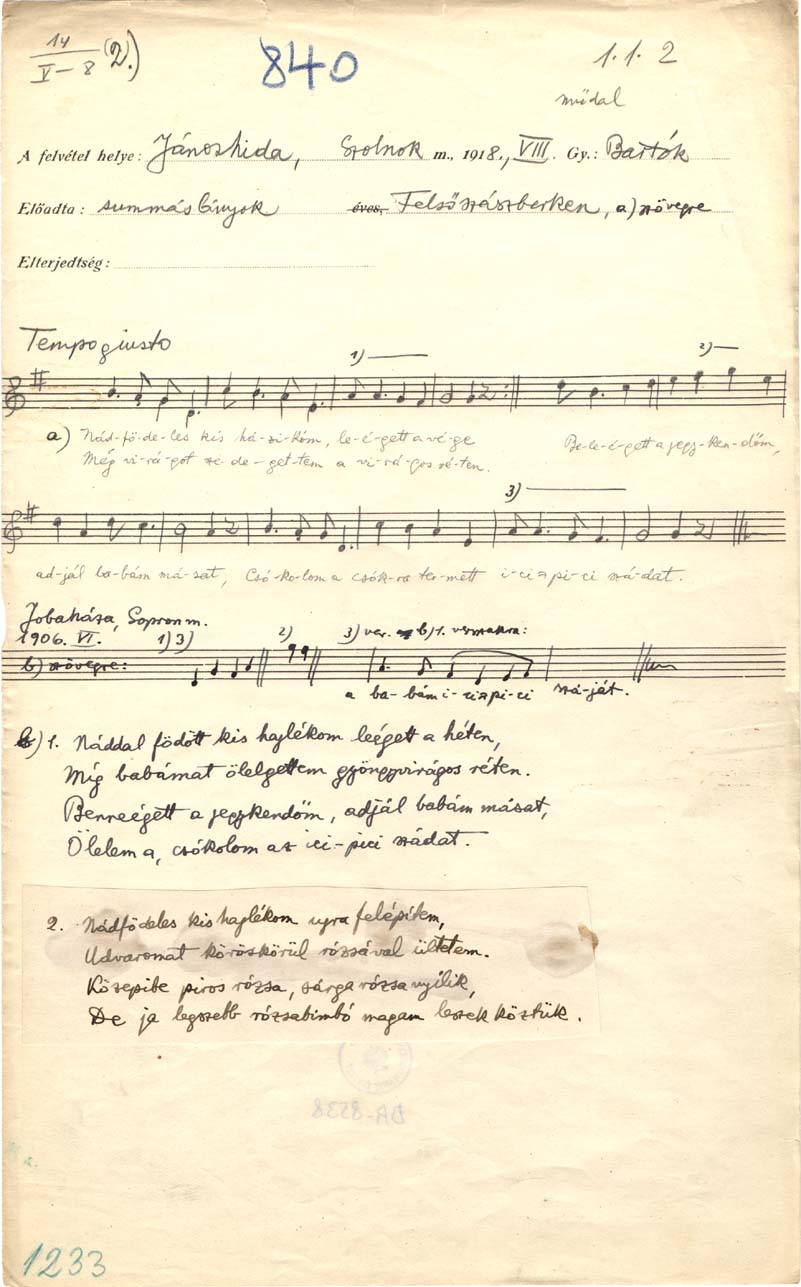 14
V–8 (2.)
840
1. 1. 2
műdal
A felvétel helye: Jánoshida, Szolnok m., 1918., VIII. Gy.: Bartók
Előadta: summáslányok éves, Felsőszászberken, a) szövegre
Elterjedtség:
Tempo giusto
1) 2)
a) Nád-fö-de-les kis há-zi-kóm, le-é-gett a vé-ge Be-le-é-gett a jegy-ken-dőm,
Még vi-rá-got sze-de-get-tem a vi-rá-gos ré-ten.
3)
ad-jál ba-bám má-sat, Csó-ko-lom a csók-ra ter-mett i-ci-pi-ci szá-dat.
Jobaháza, Sopron m.
1906. VI. 1) 3) 2) 3) var. b) 1. versszakra:
b) szövegre:
a ba-bám i-ci-pi-ci szá-ját.
b) 1. Náddal födött kis hajlékom leégett a héten,
Míg babámat ölelgettem gyöngyvirágos réten.
Benneégett a jegykendőm, adjál babám másat,
Ölelem a, csókolom az ici-pici szádat.
2. Nádfödeles kis hajlékom ujra felépítem,
Udvaromat köröskörül rózsával ültetem.
Közepibe piros rózsa, sárga rózsa nyílik,
De ja legszebb rózsabimbó magam leszek köztük.
BA-8538
1233